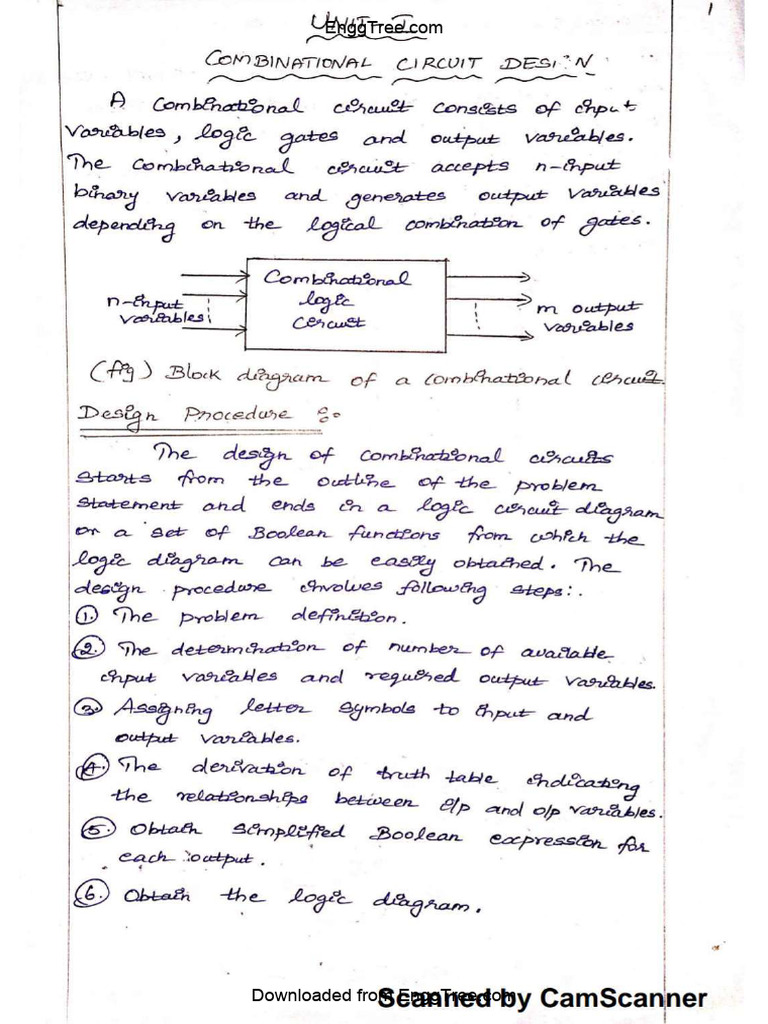 1
UNIT-I
EnggTree.com
COMBINATIONAL CIRCUIT DESIGN
A Combinational circuit consists of input
variables, logic gates and output variables.
The combinational circuit accepts n-input
binary variables and generates output variables
depending on the logical combination of gates.
n-input
variables
Combinational
logic
circuit
m output
variables
(fig) Block diagram of a combinational circuit.
Design Procedure :-
The design of combinational circuits
starts from the outline of the problem
statement and ends in a logic circuit diagram
or a set of Boolean functions from which the
logic diagram can be easily obtained. The
design procedure involves following steps:.
1. The problem definition.
2. The determination of number of available
input variables and required output variables.
3. Assigning letter symbols to input and
output variables.
4. The derivation of truth table indicating
the relationships between i/p and o/p variables.
5. Obtain simplified Boolean expression for
each output.
6. Obtain the logic diagram.
Downloaded from EnggTree.com
Scanned by CamScanner